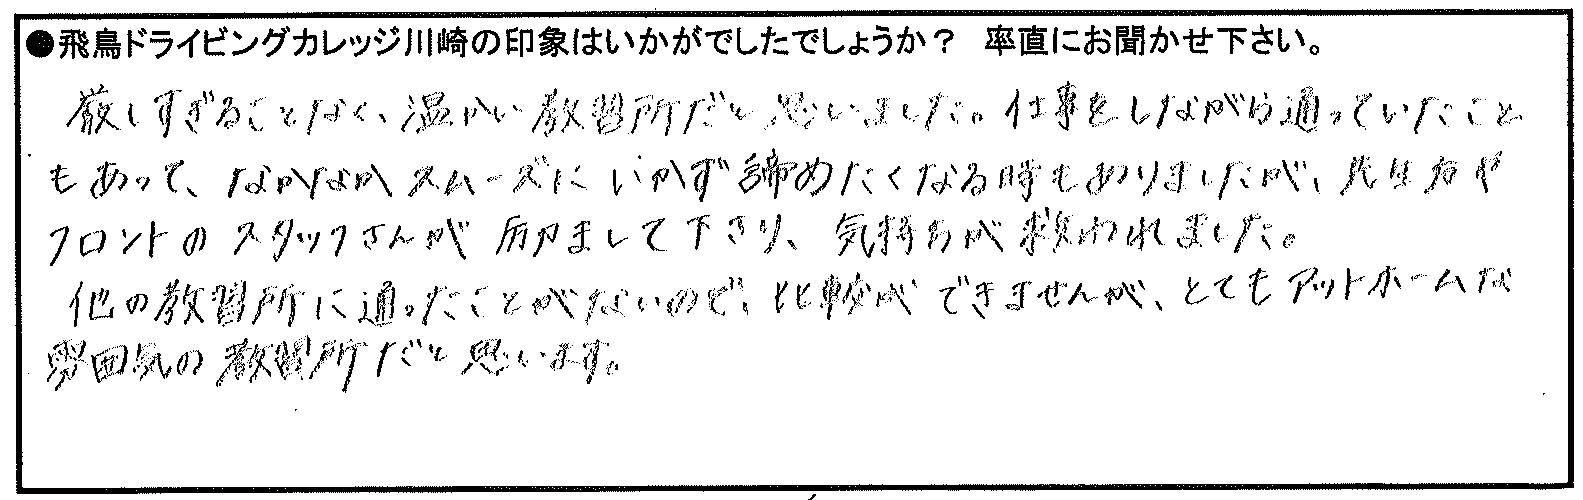 ●飛鳥ドライビングカレッジ川崎の印象はいかがでしたでしょうか？ 率直にお聞かせ下さい。
厳しすぎることなく、温かい教習所だと思いました。仕事をしながら通っていたこと
もあって、なかなかスムーズにいかず諦めたくなる時もありましたが、先生方や
フロントのスタッフさんが励まして下さり、気持ちが救われました。
他の教習所に通ったことがないので、比較ができませんが、とてもアットホームな
雰囲気の教習所だと思います。